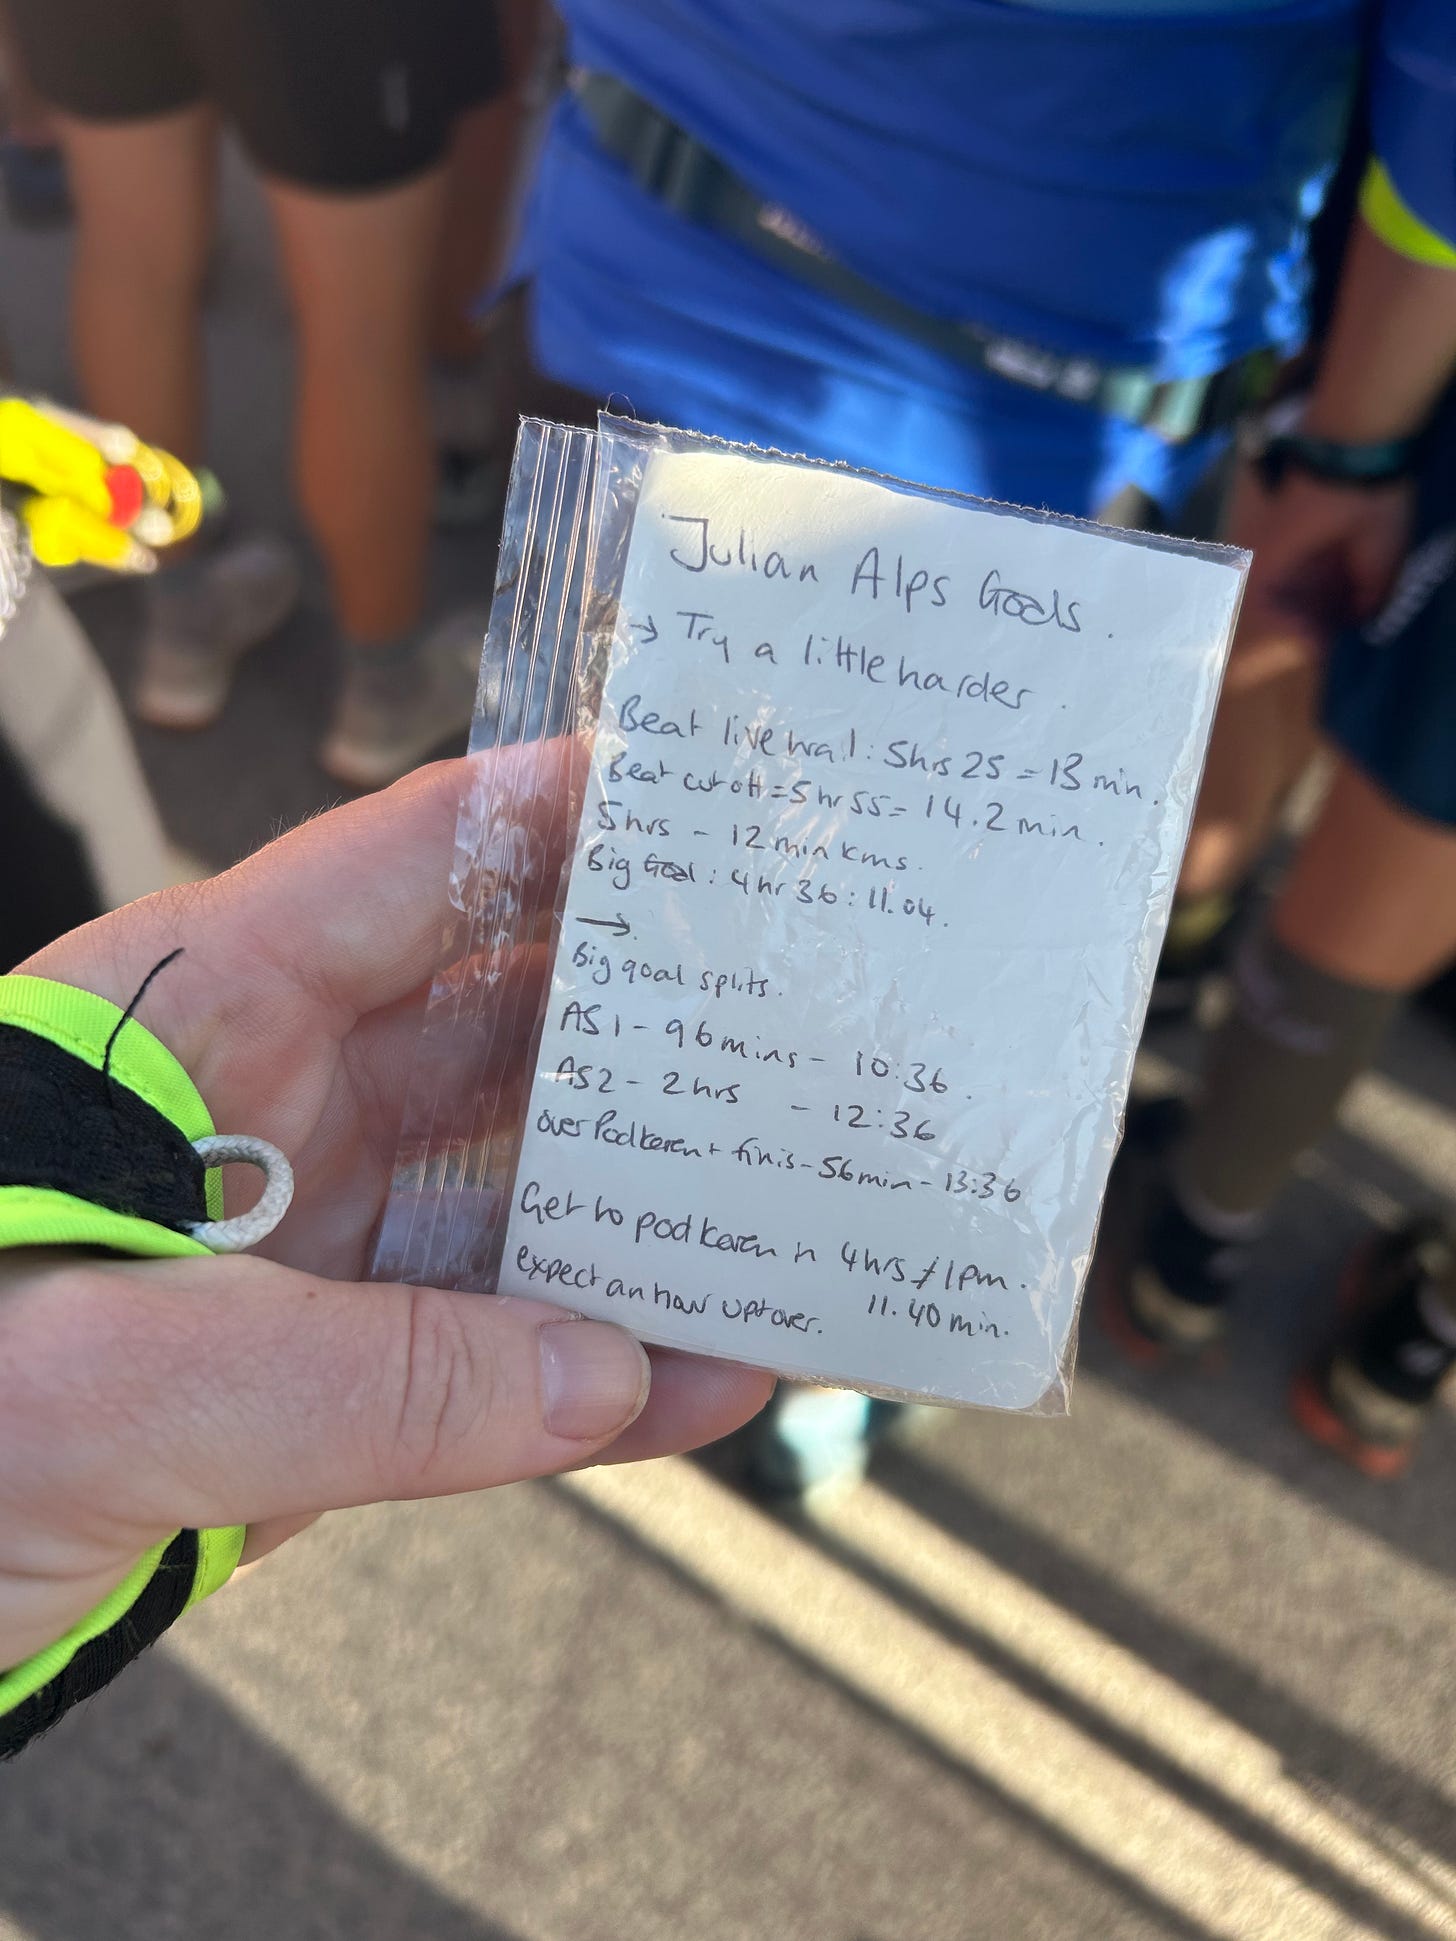 Julian Alps Goals.
→ Try a little harder.
Beat livetrail: 5hrs 25 = 13 min.
Beat cut off = 5hr55 = 14.2 min.
5hrs - 12 min kms.
Big Goal: 4hr 36: 11.04.
→
Big goal splits.
AS1 - 96mins - 10:36.
AS2 - 2hrs - 12:36
over Podkoren + finis - 56min - 13:36
Get to podkoren in 4hrs / 1pm.
11.40 min.
expect an hour up + over.